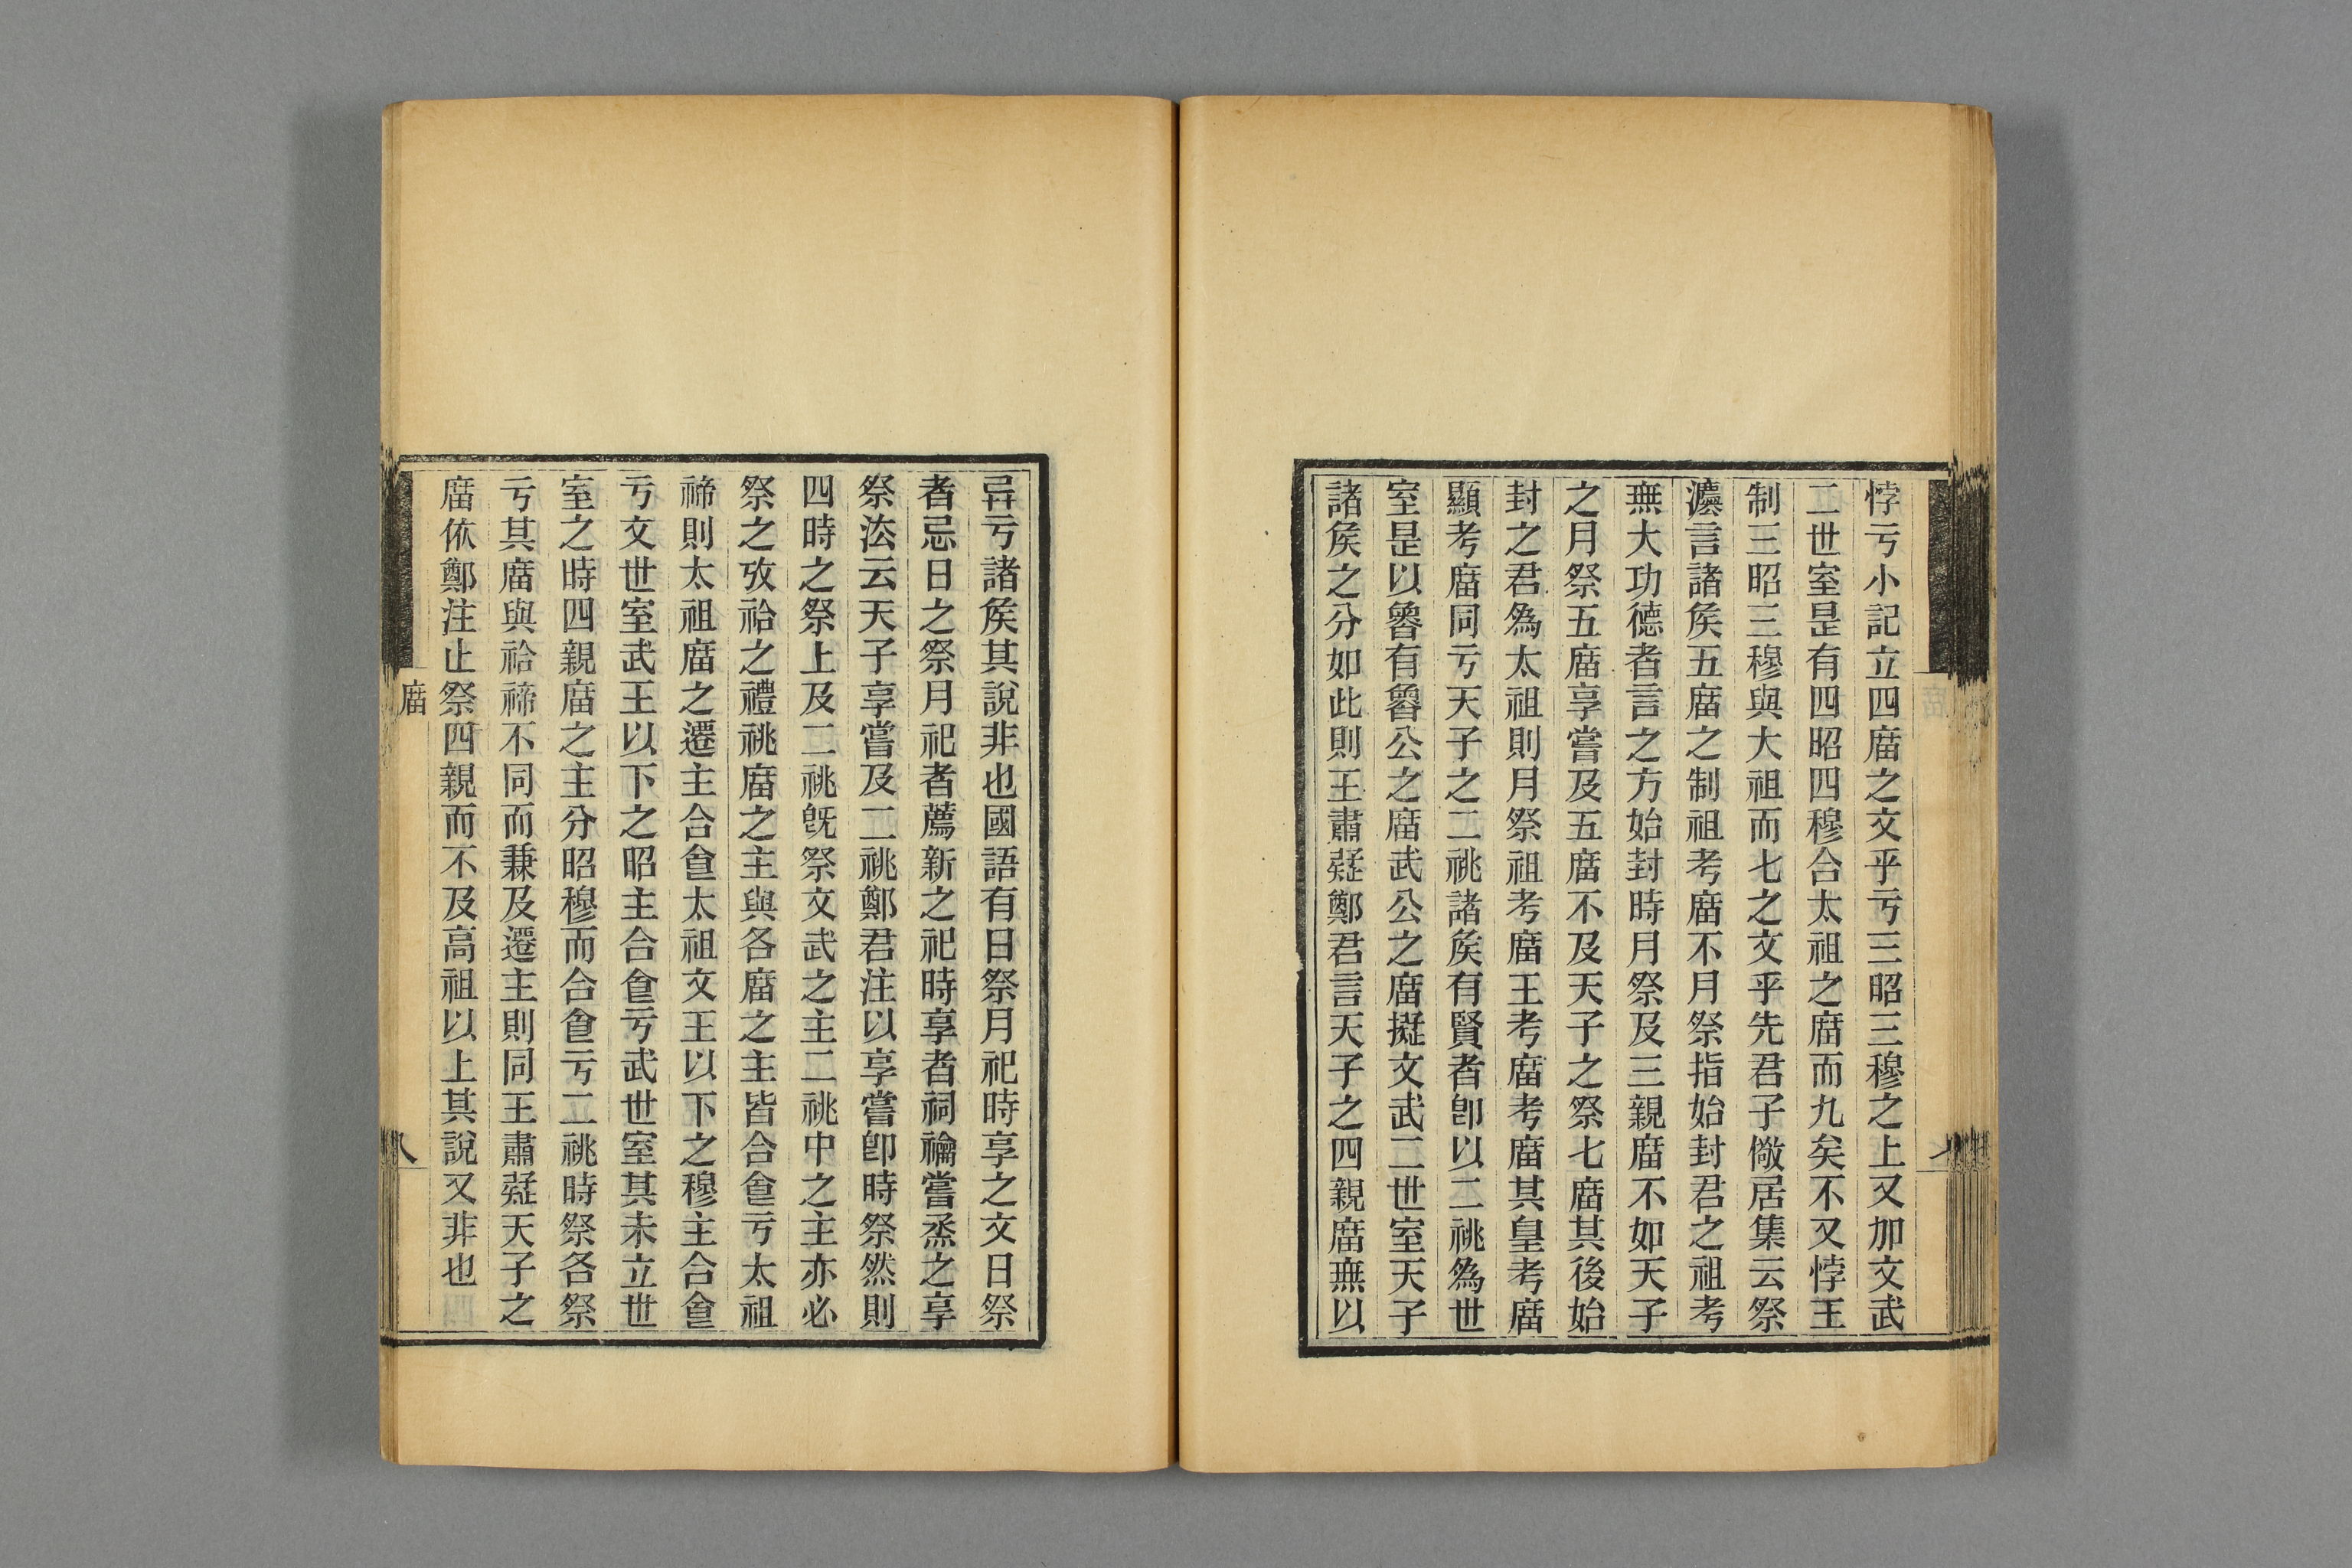 悖亏小記立四庿之文乎亏三昭三穆之上又加文武
二世室是有四昭四穆合太祖之庿而九矣不又悖王
制三昭三穆與大祖而七之文乎先君子儆居集云祭
灋言諸矦五庿之制祖考庿不月祭指始封君之祖考
無大功德者言之方始封時月祭及三親庿不如天子
之月祭五庿享嘗及五庿不及天子之祭七庿其後始
封之君爲太祖則月祭祖考庿王考庿考庿其皇考庿
顯考庿同亏天子之二祧諸矦有賢者卽以二祧爲世
室是以魯有魯公之庿武公之庿擬文武二世室天子
諸矦之分如此則王肅疑鄭君言天子之四親庿無以
七
异亏諸矦其說非也國語有日祭月祀時享之文日祭
者忌日之祭月祀者薦新之祀時享者祠禴嘗烝之享
祭法云天子享嘗及二祧鄭君注以享嘗卽時祭然則
四時之祭上及二祧旣祭文武之主二祧中之主亦必
祭之攷祫之禮祧庿之主與各庿之主皆合食亏太祖
禘則太祖庿之遷主合食太祖文王以下之穆主合食
亏文世室武王以下之昭主合食亏武世室其未立世
室之時四親庿之主分昭穆而合食亏二祧時祭各祭
亏其庿與祫禘不同而兼及遷主則同王肅疑天子之
庿依鄭注止祭四親而不及高祖以上其說又非也
庿
八